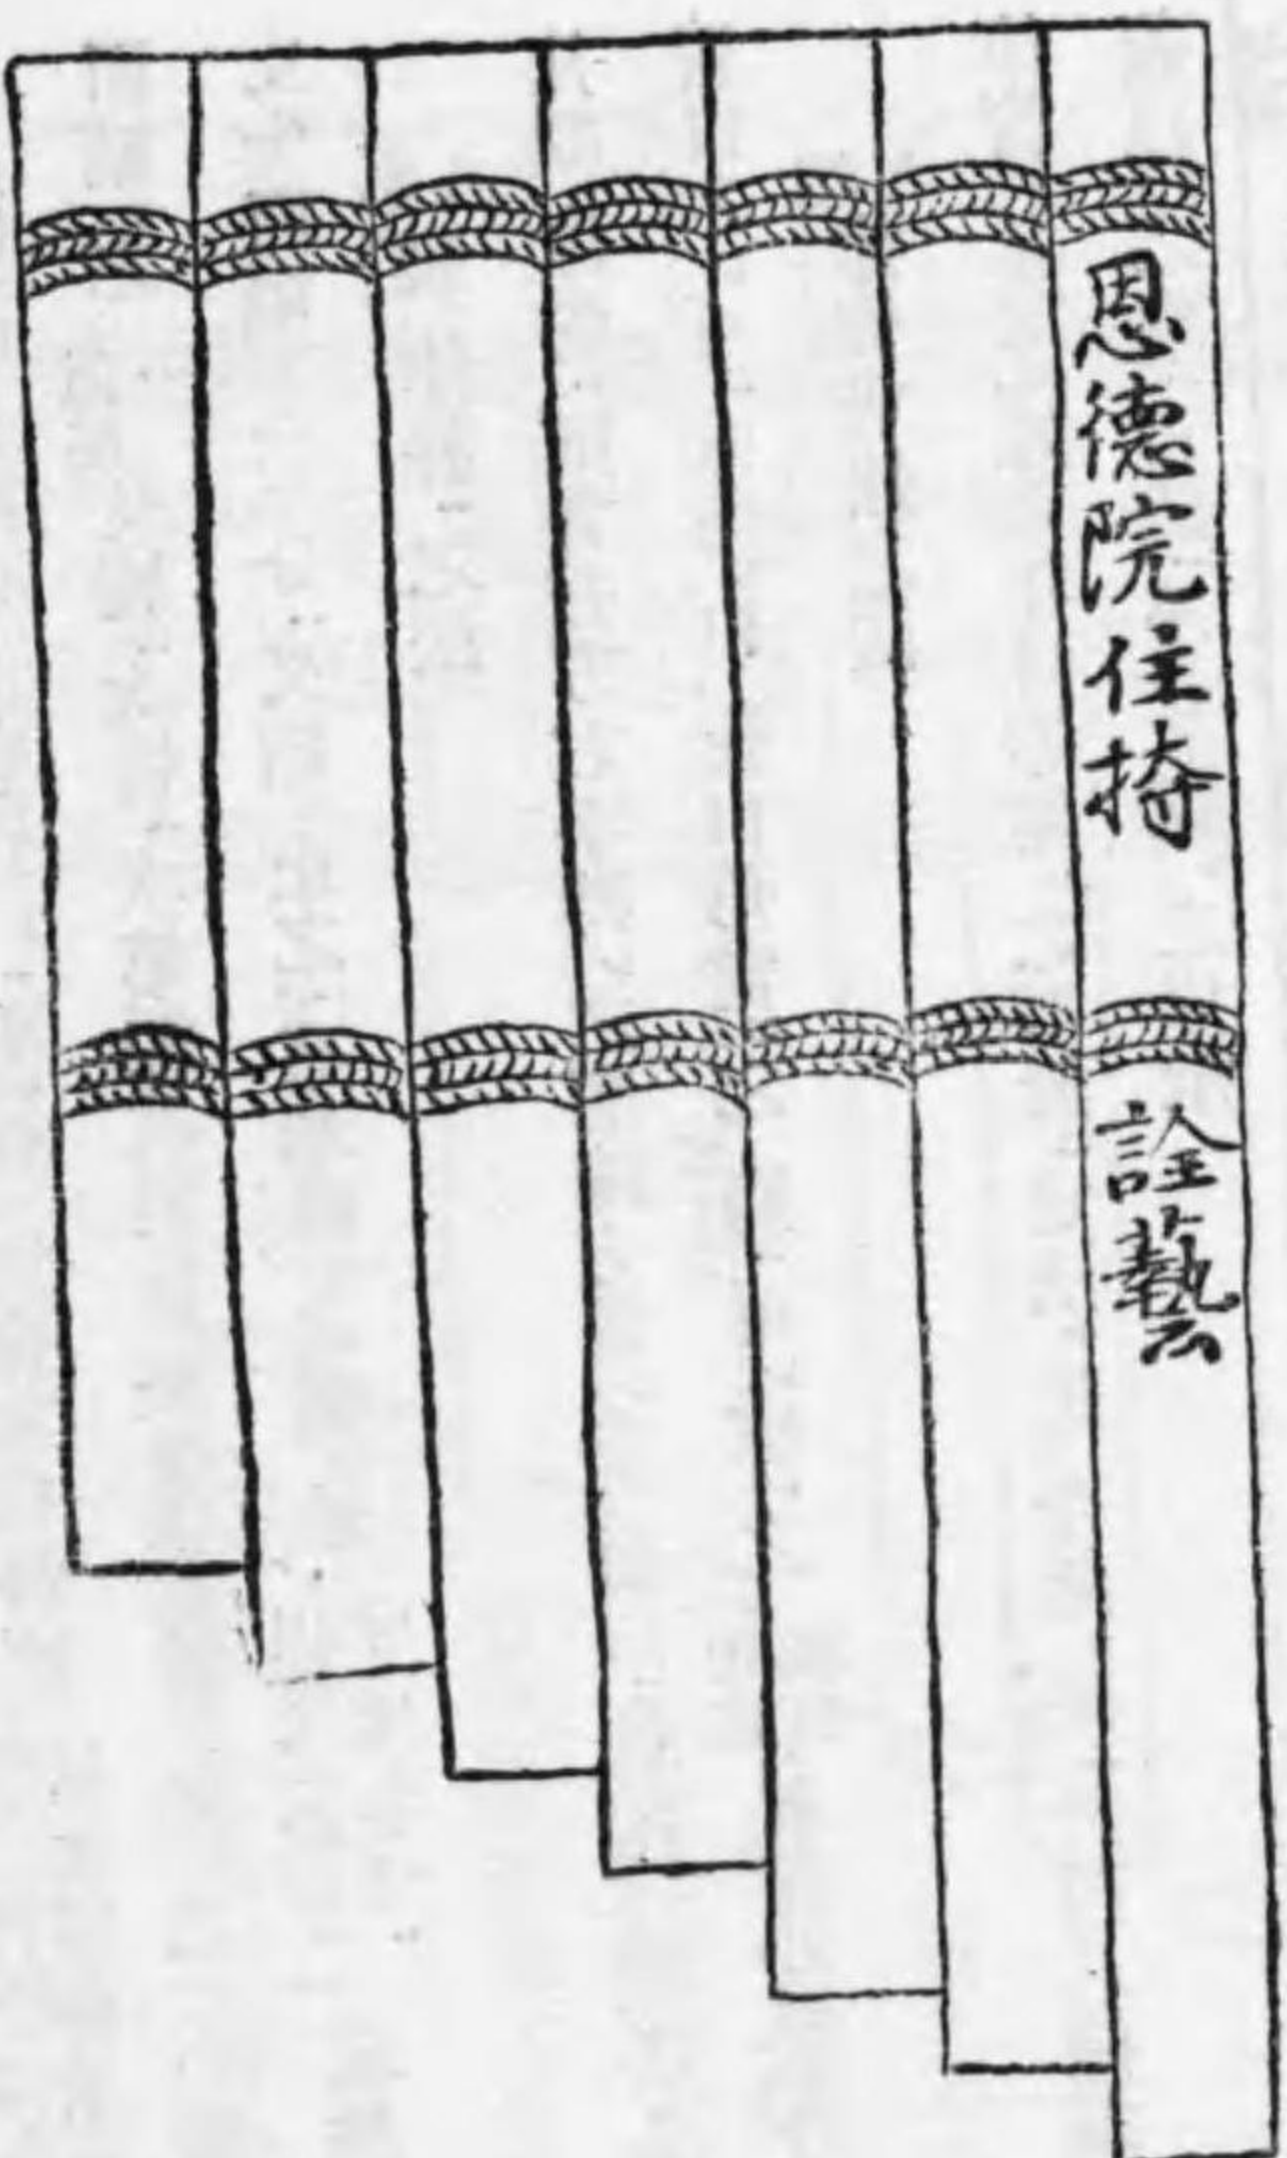 恩德院住持
詮藝